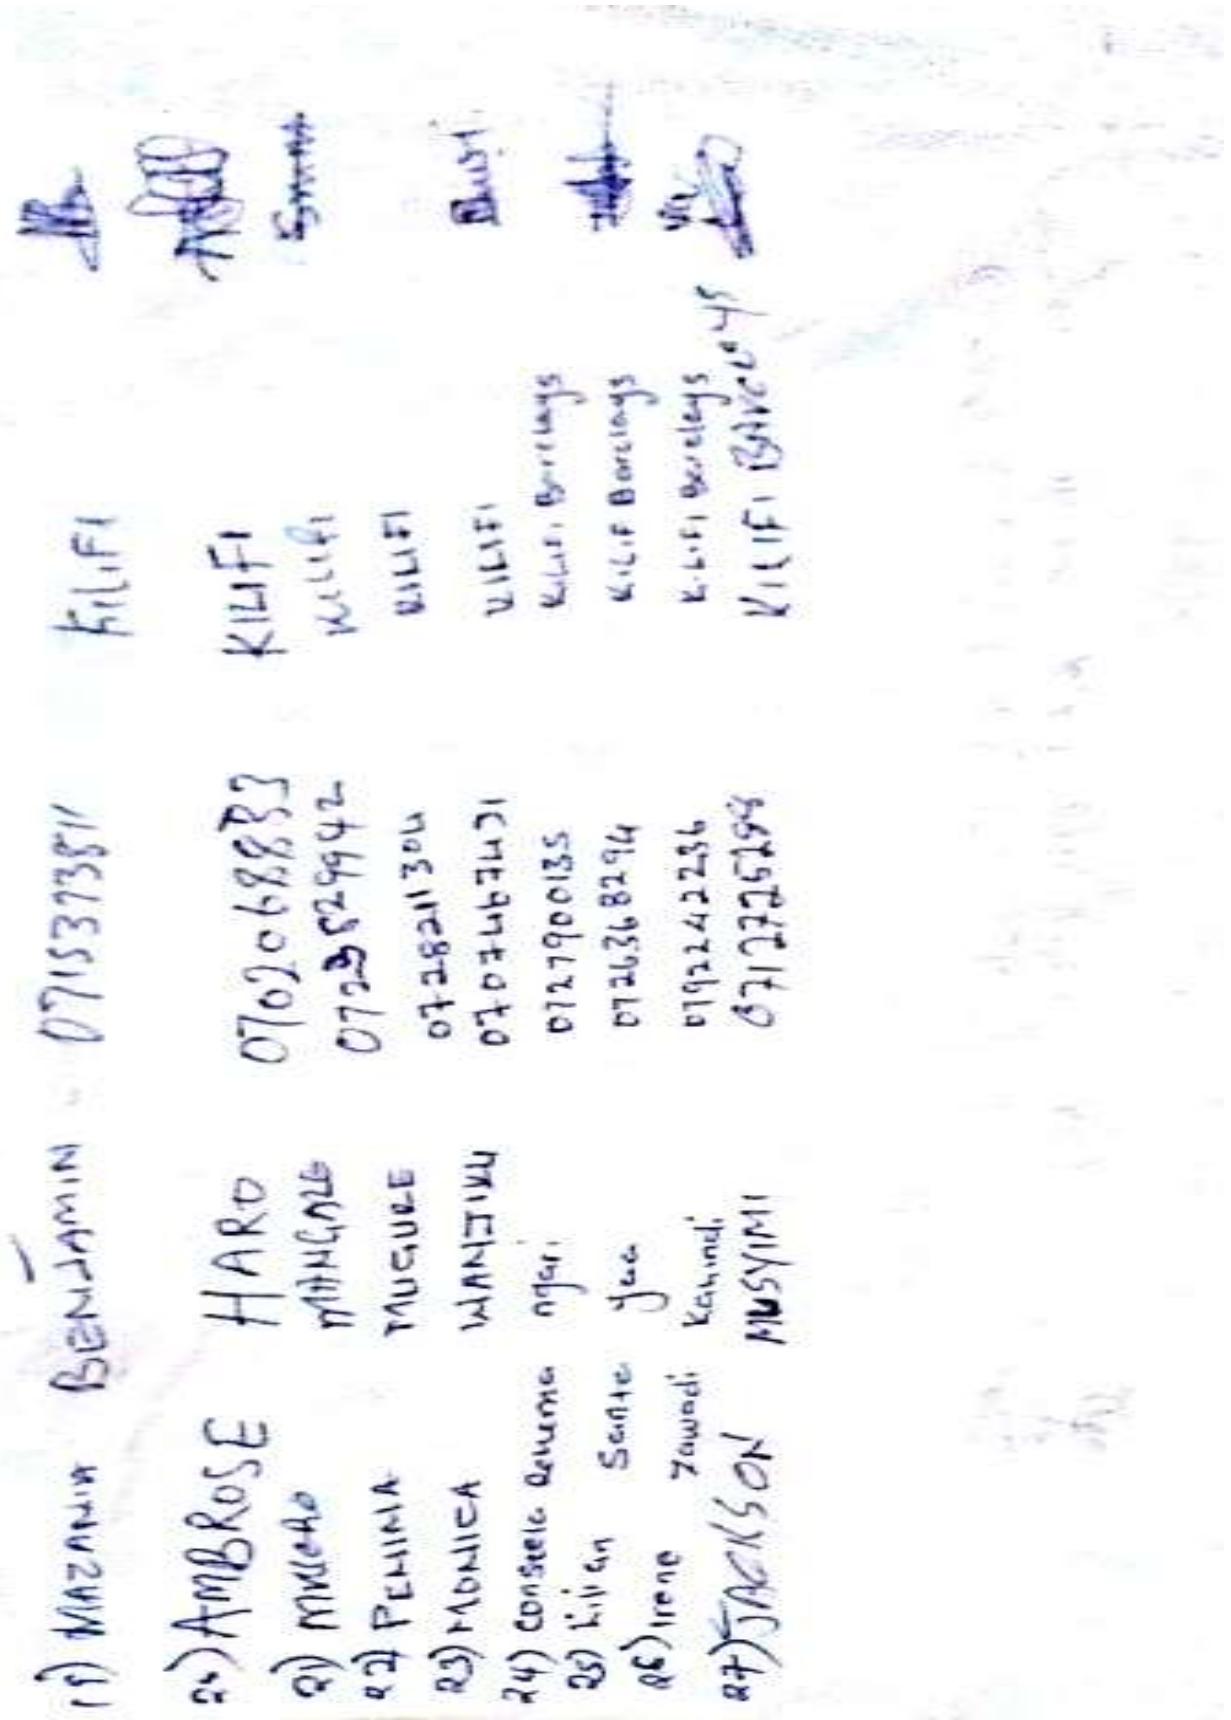 19) NAZANIA BENJAMIN 0715373811 KILIFI
20) AMBROSE HARO 0702068883 KILIFI
21) MANGALE KILIFI
22) PENINA MUGURE 0728211304 KILIFI
23) MONICA WANJIKU 0707467431 KILIFI
24) ngari 0727900135 KILIFI Barclays
25) Lilian Sante Yaa 0726368294 KILIFI Barclays
26) Irene Zawadi Kahindi 0792242236 KILIFI Barclays
27) JACKSON MUSYIMI KILIFI BARCLAYS